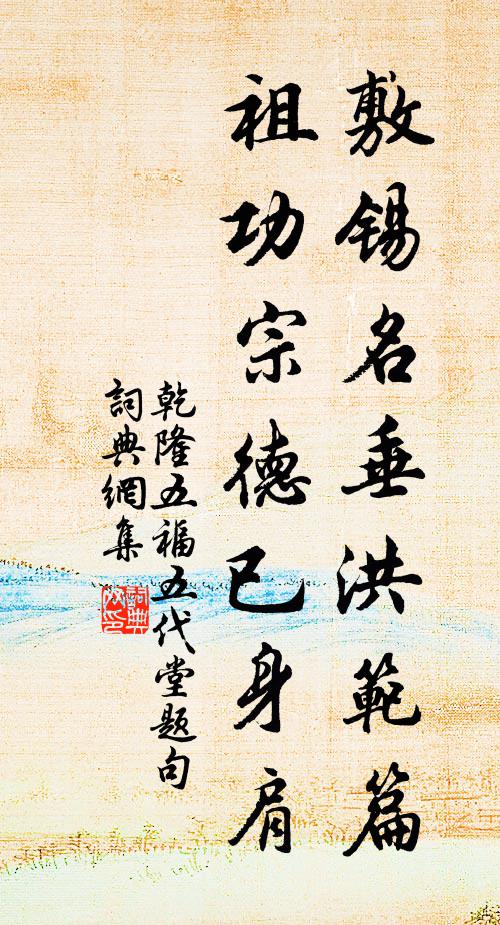 敷锡名垂洪範篇
祖功宗德已身肩
乾隆五福五代堂题句
詞典網集